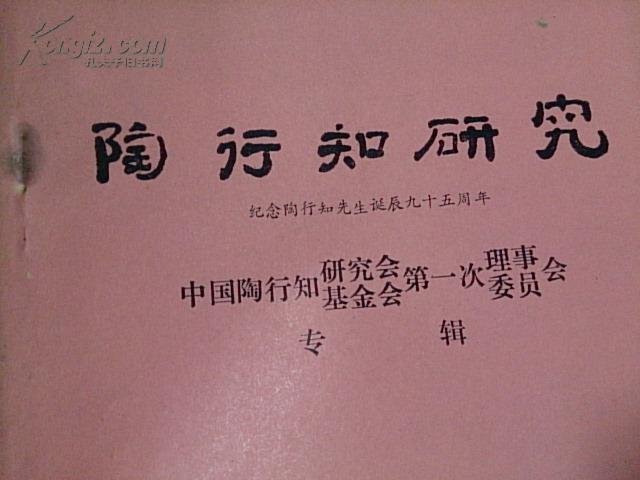 Kongfz.com
孔夫子旧书网
陶行知研究
纪念陶行知先生诞辰九十五周年
中国陶行知研究会基金会第一次理事委员会
专辑